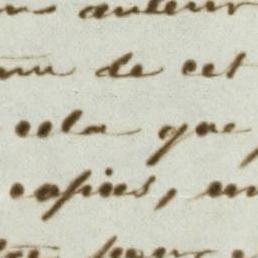 auteur
de cet
cela que
copies,
pour